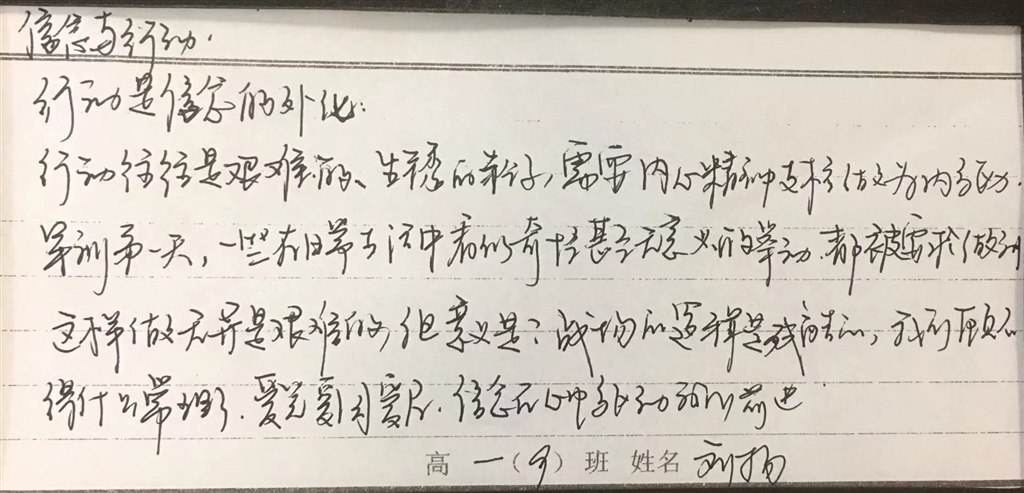 信念与行动.
行动是信念的外化:
行动往往是艰难的、生疏的举行,需要内心精神支柱做为内驱动.
军训第一天,一些在日常生活中看似奇怪甚至无意义的举动.都被要求做到
这样做无异是艰难的,但意义是:战场的逻辑是残酷的,我们顾不
得什么常理了.爱党爱国爱民.信念在心中驱动我们前进
高一(9)班 姓名 刘扬